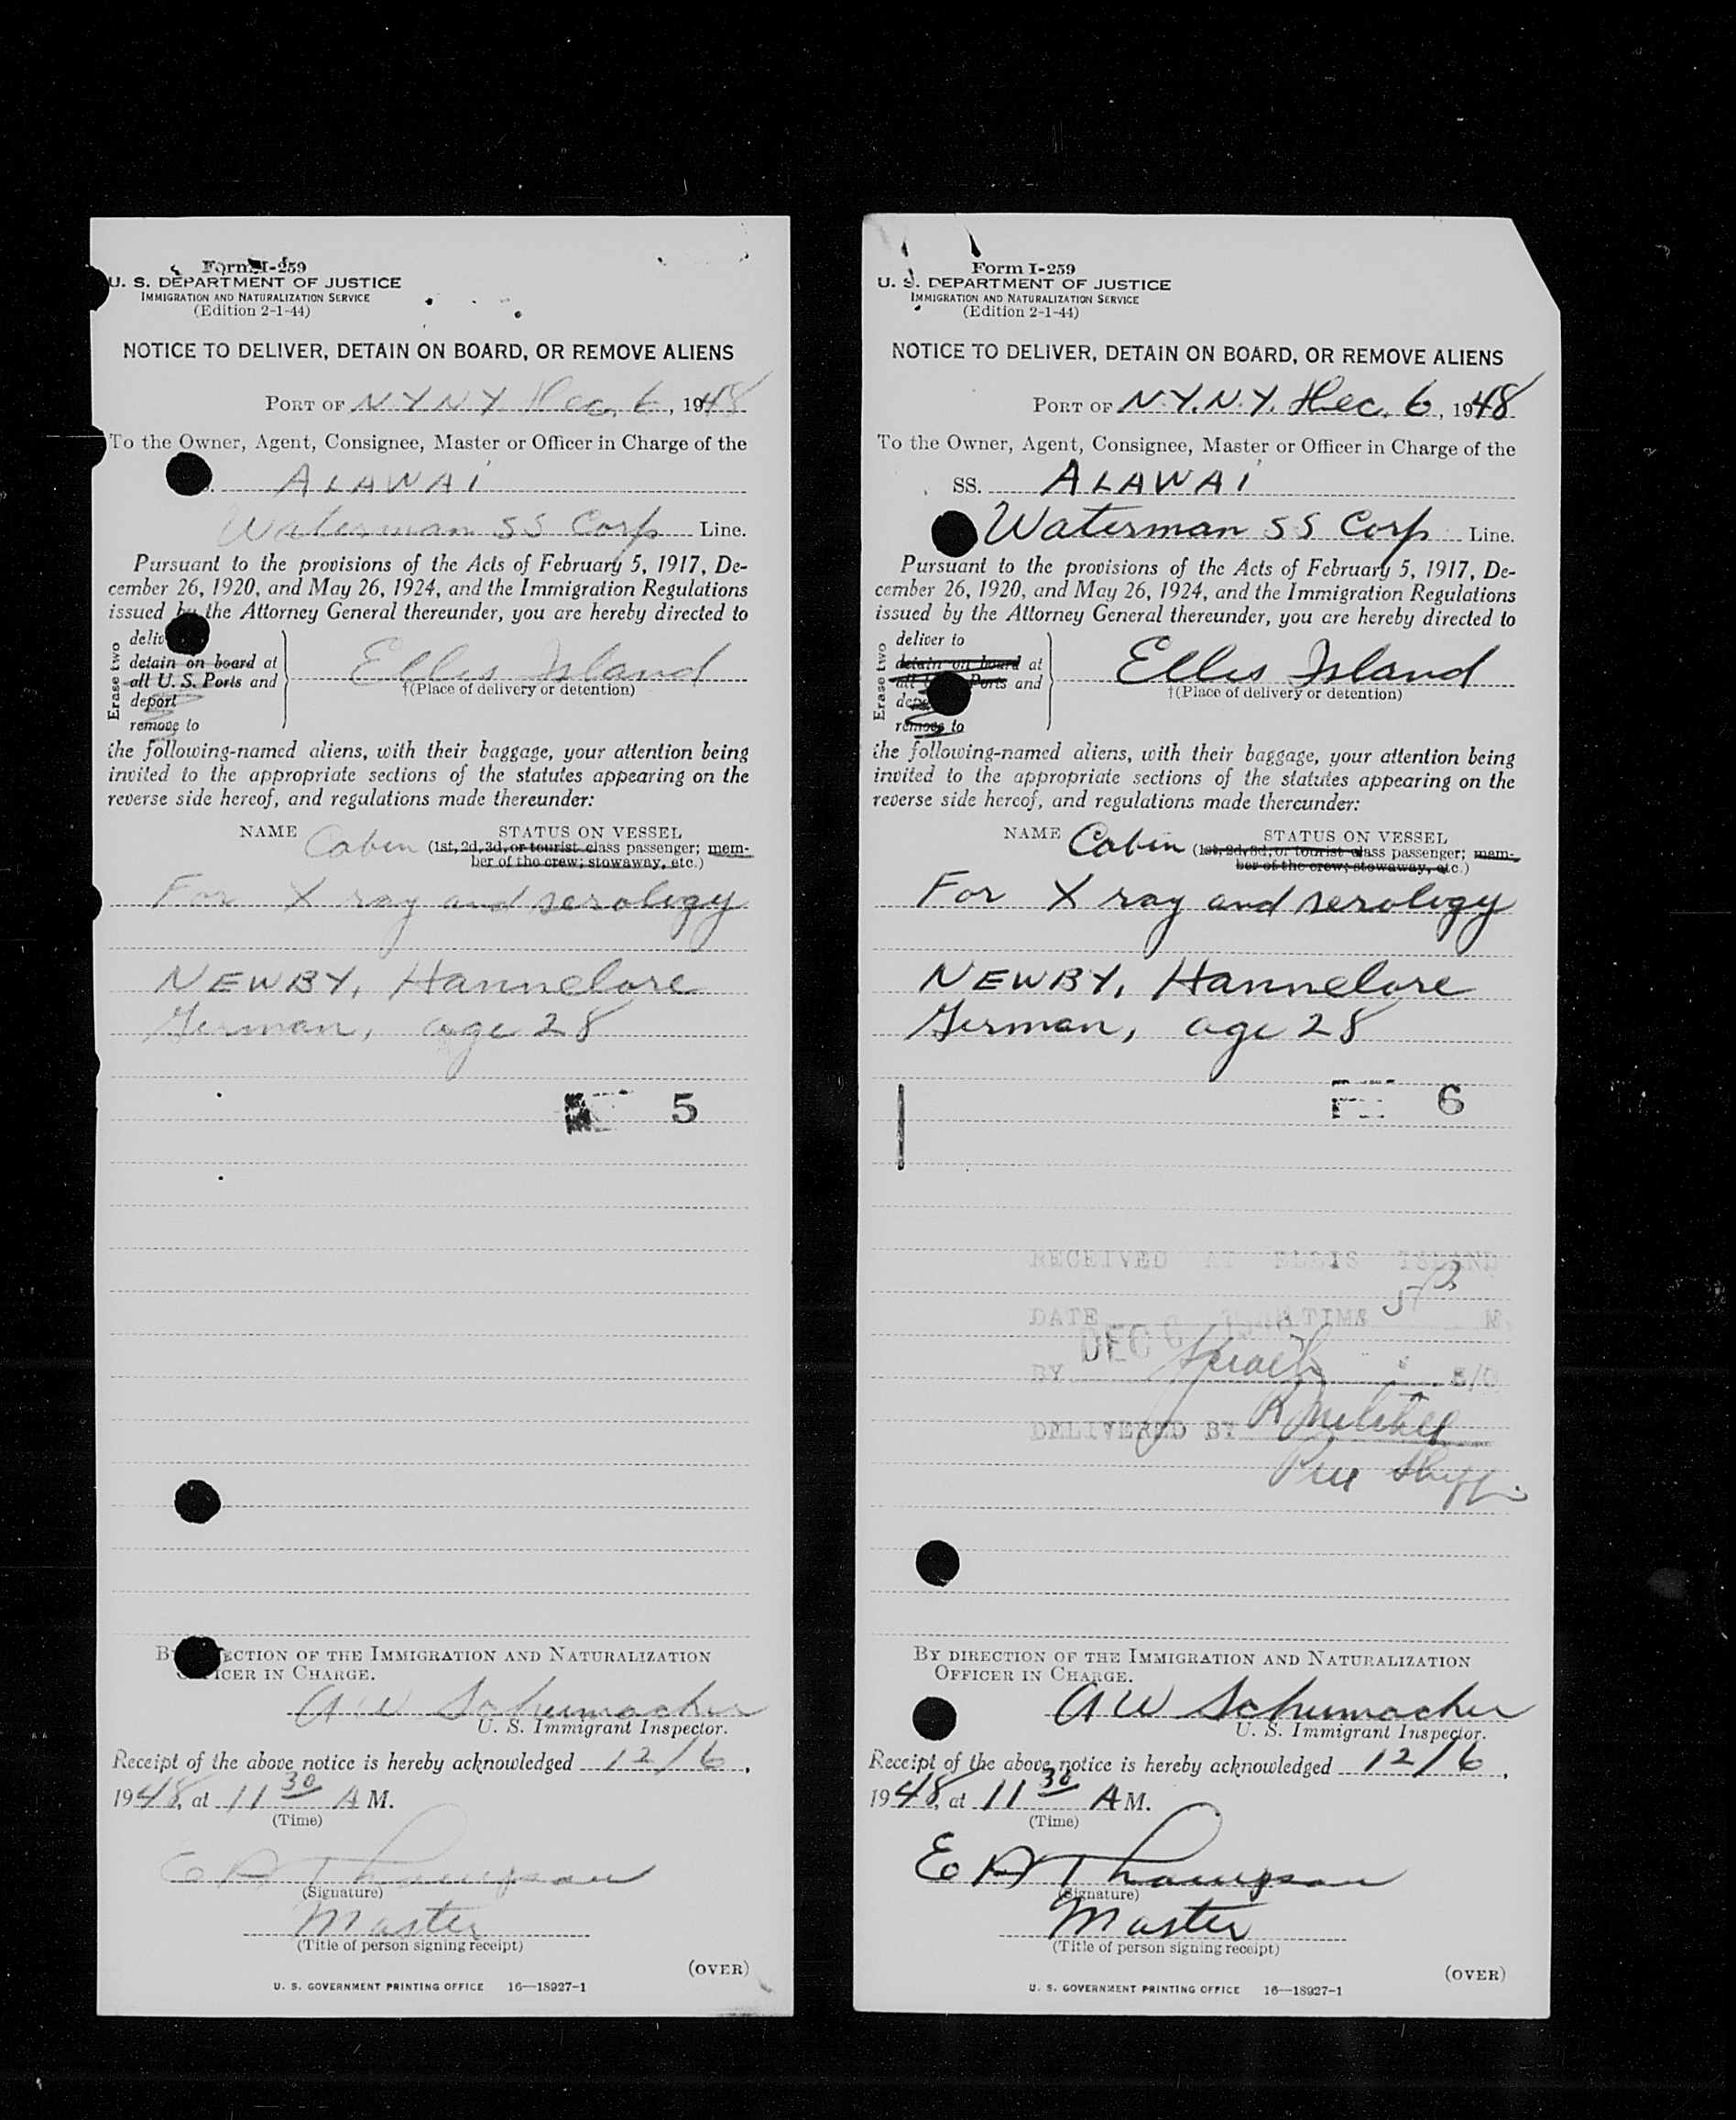 Form I-259
U. S. DEPARTMENT OF JUSTICE
IMMIGRATION AND NATURALIZATION SERVICE
(Edition 2-1-44)
NOTICE TO DELIVER, DETAIN ON BOARD, OR REMOVE ALIENS
PORT OF N.Y.N.Y. Dec. 6, 1948
To the Owner, Agent, Consignee, Master or Officer in Charge of the
ALAWAI
Waterman SS Corp Line.
Pursuant to the provisions of the Acts of February 5, 1917, De-
cember 26, 1920, and May 26, 1924, and the Immigration Regulations
issued by the Attorney General thereunder, you are hereby directed to
Erase two
deliv
detain on board at
all U. S. Ports and
deport
remove to
Ellis Island
†(Place of delivery or detention)
the following-named aliens, with their baggage, your attention being
invited to the appropriate sections of the statutes appearing on the
reverse side hereof, and regulations made thereunder:
NAME STATUS ON VESSEL
Cabin (1st, 2d, 3d, or tourist class passenger; mem-
ber of the crew; stowaway, etc.)
For X ray and serology
NEWBY, Hannelore
German, age 28
5
ECTION OF THE IMMIGRATION AND NATURALIZATION
ICER IN CHARGE.
A W Schumacher
U. S. Immigrant Inspector.
Receipt of the above notice is hereby acknowledged 12/6,
1948, at 11 30 A M.
(Time)
E A Thompson
(Signature)
Master
(Title of person signing receipt)
(OVER)
U. S. GOVERNMENT PRINTING OFFICE 16—18927-1
Form I-259
U. S. DEPARTMENT OF JUSTICE
IMMIGRATION AND NATURALIZATION SERVICE
(Edition 2-1-44)
NOTICE TO DELIVER, DETAIN ON BOARD, OR REMOVE ALIENS
PORT OF N.Y.N.Y. Dec. 6, 1948
To the Owner, Agent, Consignee, Master or Officer in Charge of the
SS. ALAWAI
Waterman SS Corp Line.
Pursuant to the provisions of the Acts of February 5, 1917, De-
cember 26, 1920, and May 26, 1924, and the Immigration Regulations
issued by the Attorney General thereunder, you are hereby directed to
Erase two
deliver to
detain on board at
all U. Ports and
dep
remove to
Ellis Island
†(Place of delivery or detention)
the following-named aliens, with their baggage, your attention being
invited to the appropriate sections of the statutes appearing on the
reverse side hereof, and regulations made thereunder:
NAME STATUS ON VESSEL
Cabin (1st, 2d, 3d, or tourist class passenger; mem-
ber of the crew; stowaway, etc.)
For X ray and serology
NEWBY, Hannelore
German, age 28
6
RECEIVED AT ELLIS ISLAND
DATE DEC 6 1948 TIME M
BY
DELIVERED BY
BY DIRECTION OF THE IMMIGRATION AND NATURALIZATION
OFFICER IN CHARGE.
A W Schumacher
U. S. Immigrant Inspector.
Receipt of the above notice is hereby acknowledged 12/6,
1948, at 11 30 A M.
(Time)
E A Thompson
(Signature)
Master
(Title of person signing receipt)
(OVER)
U. S. GOVERNMENT PRINTING OFFICE 16—18927-1